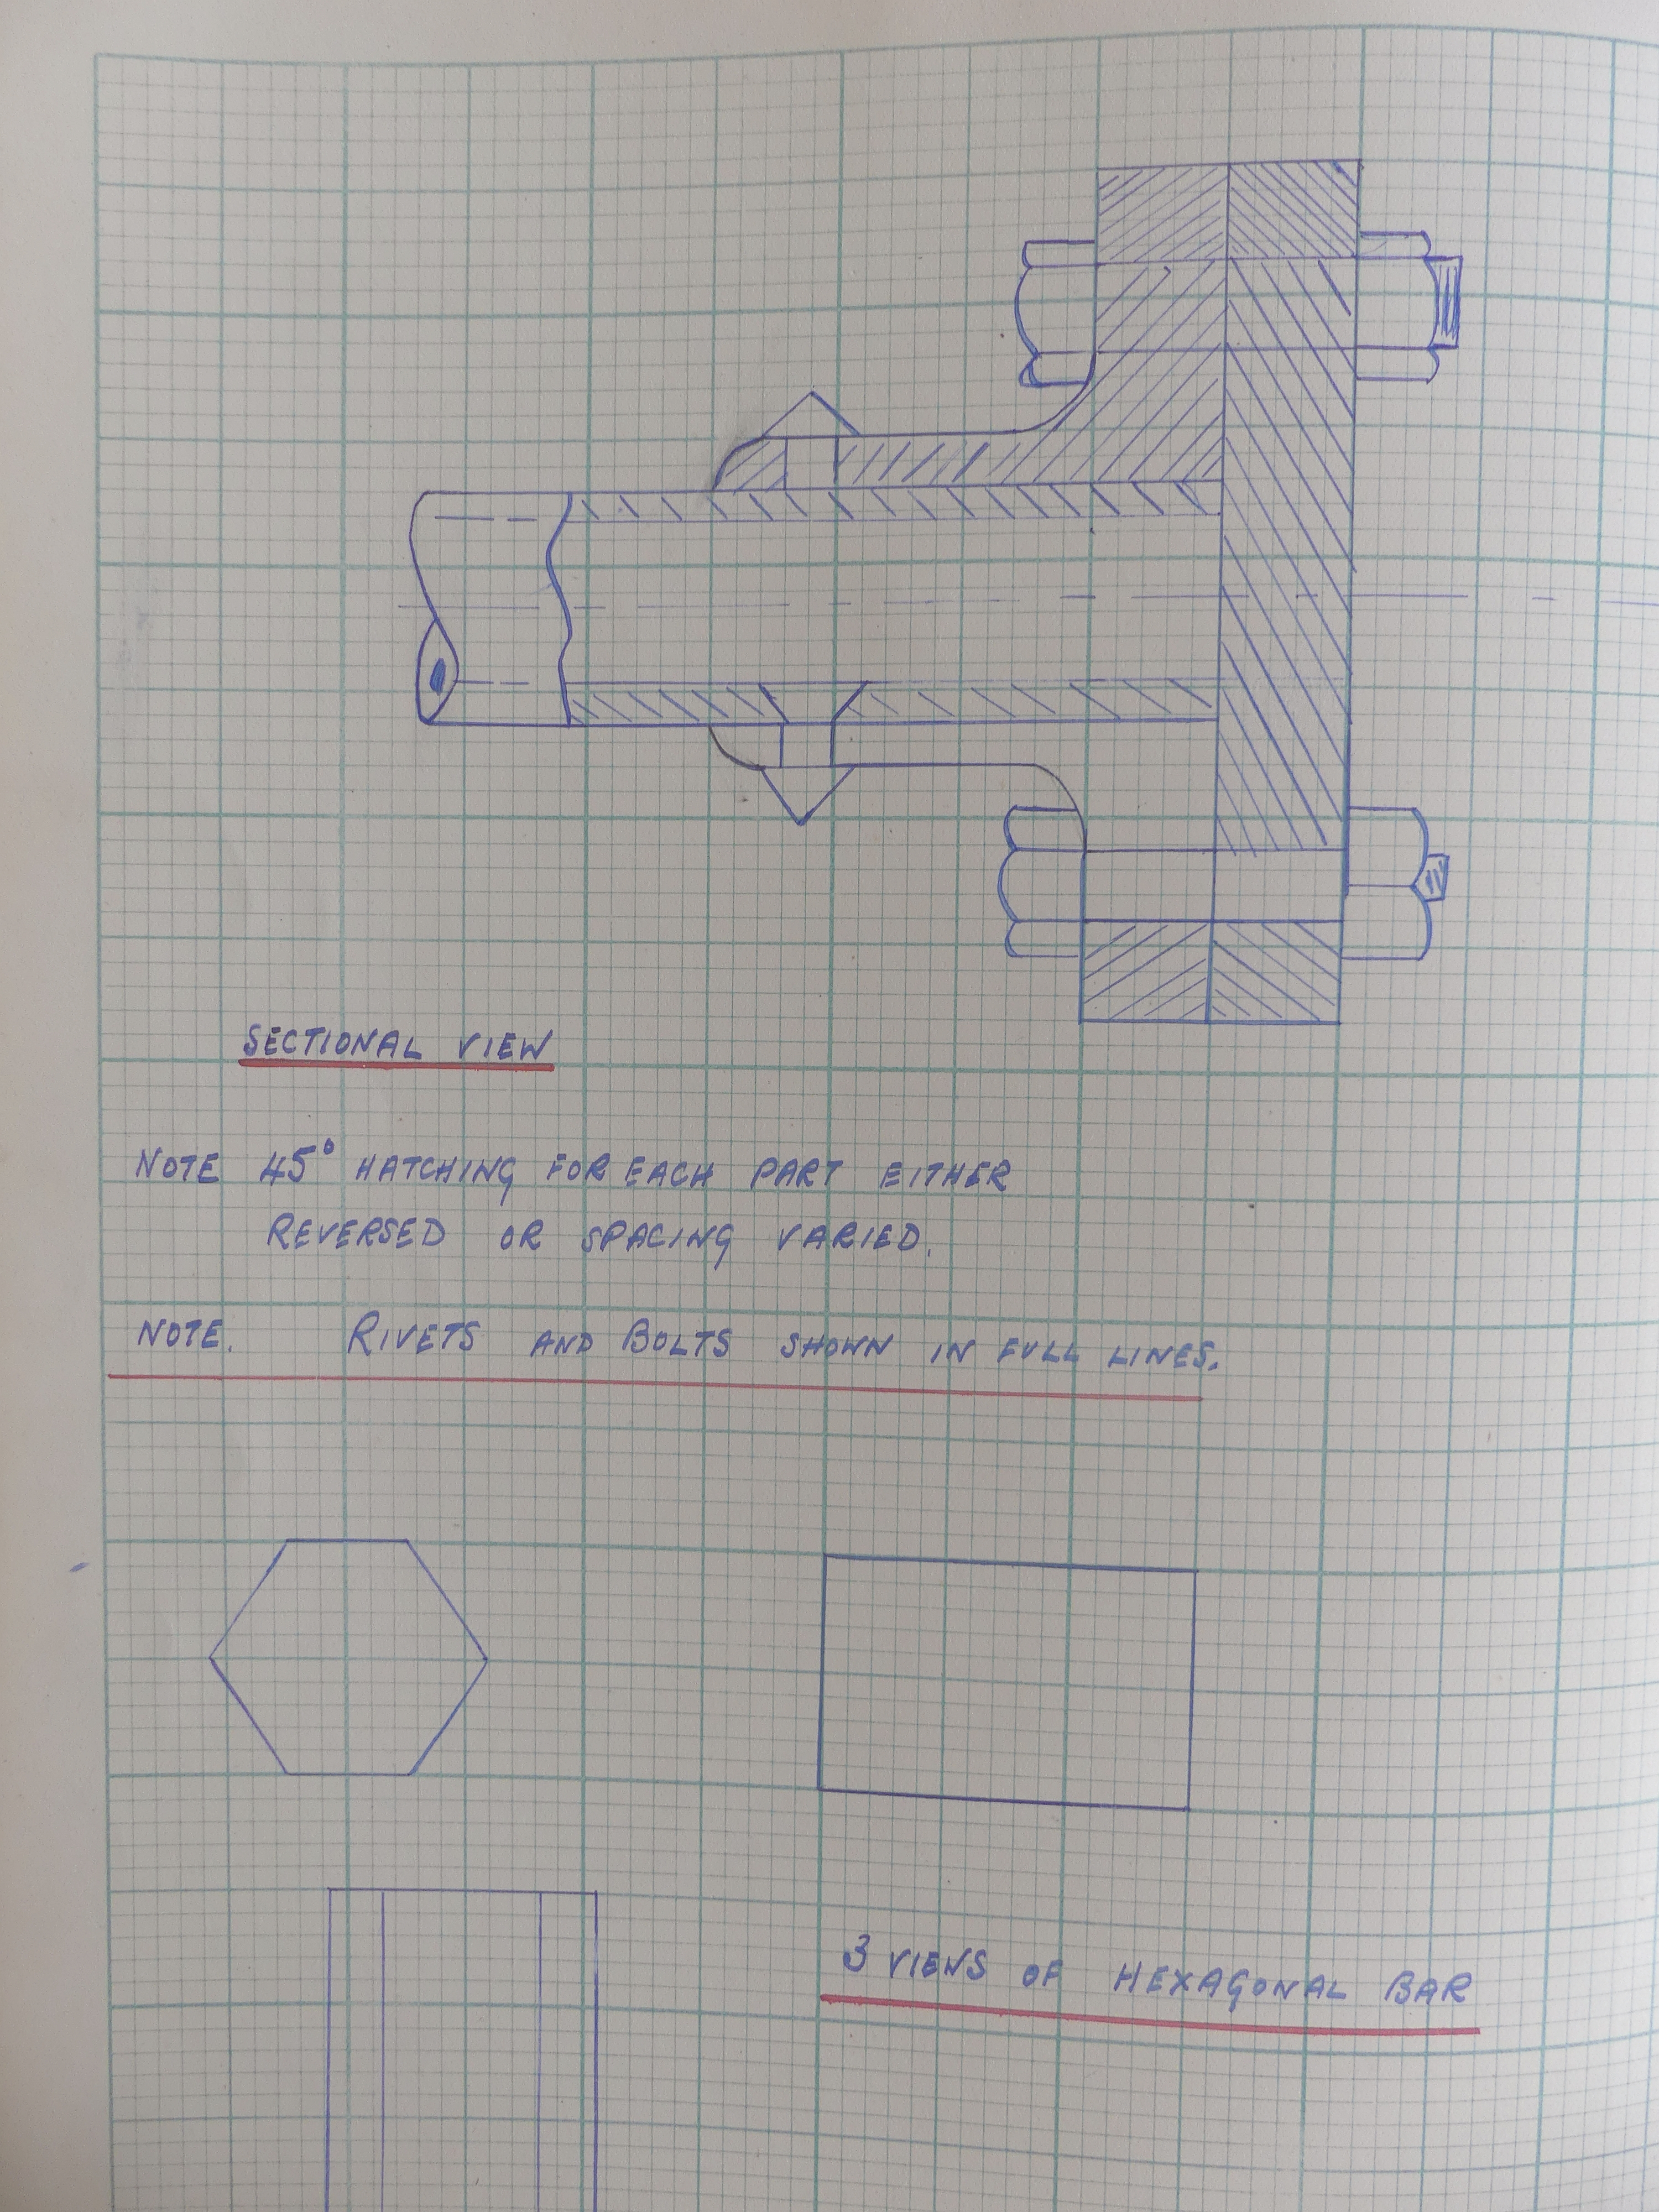 SECTIONAL VIEW
NOTE 45° HATCHING FOR EACH PART EITHER
REVERSED OR SPACING VARIED.
NOTE. RIVETS AND BOLTS SHOWN IN FULL LINES.
3 VIEWS OF HEXAGONAL BAR